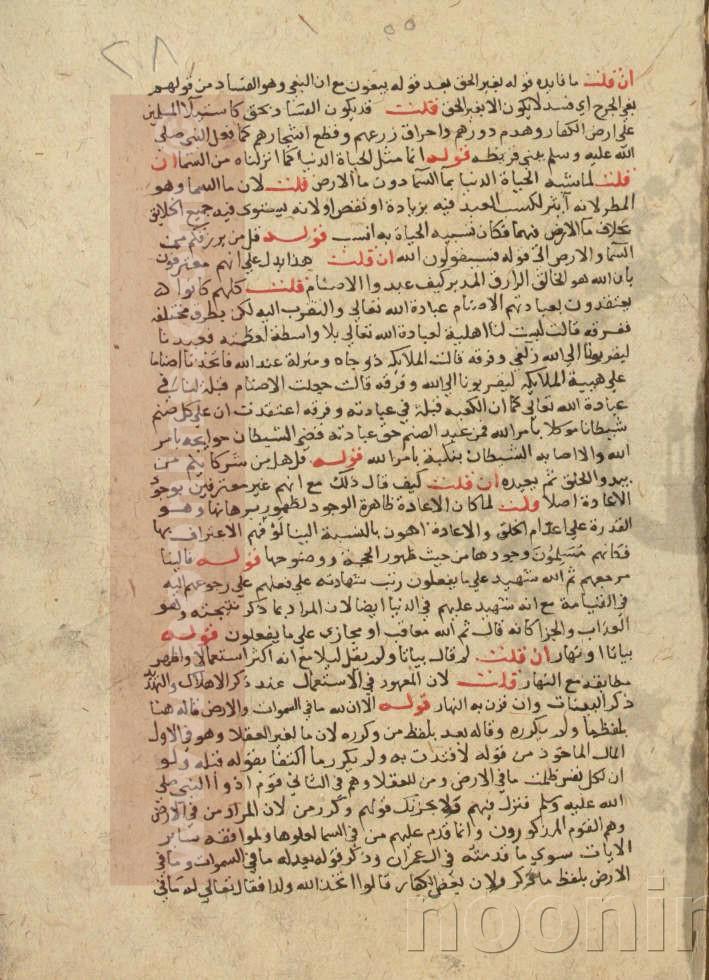 ٢٨
ان قلت ما فايده قوله بغير الحق بعد قوله يبغون مع ان البغي وهو الفساد من قولهم
بغي الجرح اي فسد لا يكون الا بغير الحق قلت قد يكون الفساد بحق كاستيلا المسلمين
على ارض الكفار وهدم دورهم واحراق زرعهم وقطع اشجارهم كما فعل النبي صلى
الله عليه وسلم ببني قريظه قوله انما مثل الحياة الدنيا كما انزلناه من السما ان
قلت لم شبه الحياة الدنيا بما السما دون ما الارض قلت لان ما السما وهو
المطر لانه لا يثر لكسب العبد فيه بزيادة او نقص او لانه يستوي فيه جميع الخلايق
بخلاف ما الارض فيهما فكان تشبيه الحياة به انسب قوله قل من يرزقكم من
السما والارض الى قوله فسيقولون الله ان قلت هذا يدل على انهم معترفون
بان الله هو الخالق الرازق المدبر كيف عبدوا الاصنام قلت كلهم كانوا
يعتقدون بعبادتهم الاصنام عبادة الله تعالى والتقرب اليه لكن بطرق مختلفه
ففرقه قالت ليست لنا اهلية لعبادة الله تعالى بلا واسطة لعظمته فعبدنا
ليقربونا الى الله زلفى وفرقه قالت الملايكه ذو جاه ومنزلة عند الله فاتخذنا اصناما
على هيية الملايكه ليقربونا الى الله وفرقه قالت جعلت الاصنام قبلة لنا في
عبادة الله تعالى كما ان الكعبه قبلة في عبادته وفرقه اعتقدت ان على كل صنم
شيطانا موكلا بامر الله فمن عبد الصنم حق عبادته قضى الشيطان حوايجه بامر
الله والا اصابه الشيطان بنكبة بامر الله قوله قل هل من شركايكم من
يبدو الخلق ثم يعيده ان قلت كيف قال ذلك مع انهم غير معترفين بوجود
الاعادة اصلا قلت لما كان الاعادة ظاهرة الوجود لظهور برهانها وهو
القدرة على اعدام الخلق والاعادة اهون بالنسبة الينا لزمهم الاعتراف بها
فكانهم مسلمون وجودها من حيث ظهور الحجة ووضوحها قوله فالينا
مرجعهم ثم الله شهيد على ما يفعلون رتب شهادته على فعلهم على رجوعهم اليه
في القيامة مع انه شهيد عليهم في الدنيا ايضا لان المراد بما ذكر نتيجته وهو
العذاب والجزا كانه قال ثم الله معاقب او مجازي على ما يفعلون قوله
بياتا او نهار ان قلت لم قال بياتا ولم يقل ليلا مع انه اكثر استعمالا واظهر
مطابقه مع النهار قلت لان المعهود في الاستعمال عند ذكر الاهلاك والتهدد
ذكر البيات وان قرن به النهار قوله الا ان لله ما في السموات والارض قاله هنا
بلفظ ما ولم يكرره وقاله بعد بلفظ من وكرره لان ما لغير العقلا وهو في الاول
المال الماخوذ من قوله لافتدت به ولم يكرر ما اكتفا بقوله قبله ولو
ان لكل نفس ظلمت ما في الارض ومن للعقلا وهم في الثاني قوم اذوا النبي صلى
الله عليه وسلم فنزل فيهم ولا يحزنك قولهم وكرر من لان المراد من في الارض
وهم القوم المذكورون وانما قدم عليهم من في السما لعلوها ولموافقة ساير
الايات سوى ما قدمته في ال عمران وذكر قوله بعد له ما في السموات وما في
الارض بلفظ ما وكرر ولان بعض الكفار قالوا اتخذ الله ولدا فقال تعالى له ما في
noorin